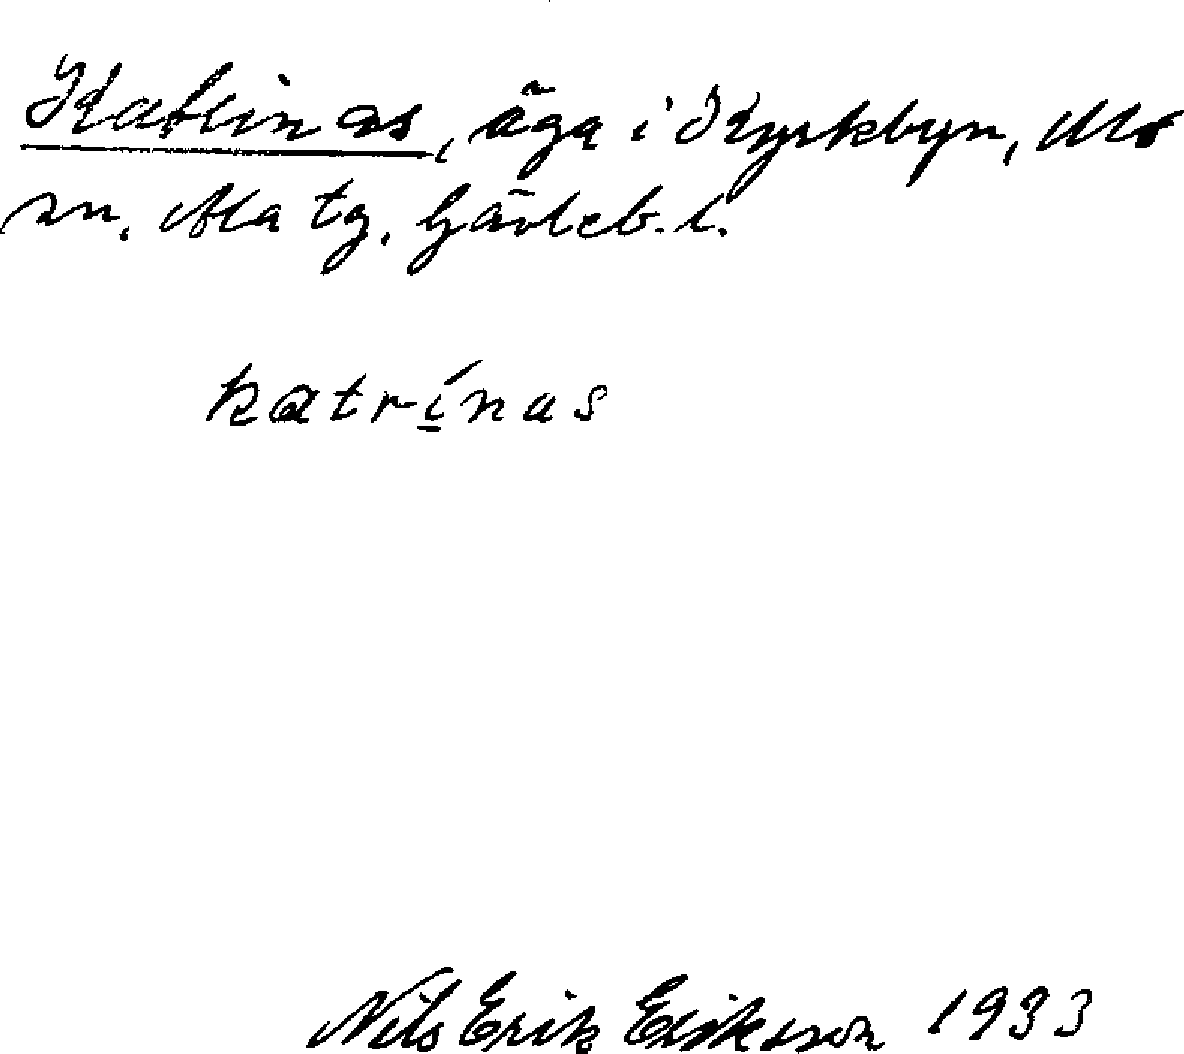 Katrinas, äga i Kyrkbyn, Mo
sn. Ala tg, Gävleb. l.
katrínas
Nils Erik Eriksson 1933